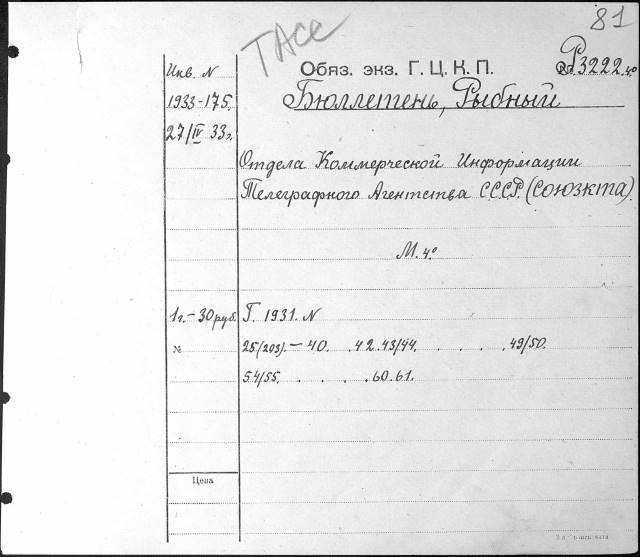 81
ТАСС
Инв. N
Обяз. экз. Г. Ц. К. П.
Р 3222. 4º
1933-175
Бюллетень, Рыбный
27/IV 33 г.
Отдела Коммерческой Информации
Телеграфного Агентства С.С.С.Р. (СОЮЗКТА).
М. 4º
1 г. – 30 руб. Г. 1931. N
№ 25(203). – 40. .42. 43/44. . . . . .49/50.
54/55. . . . . .60.61.
Цена